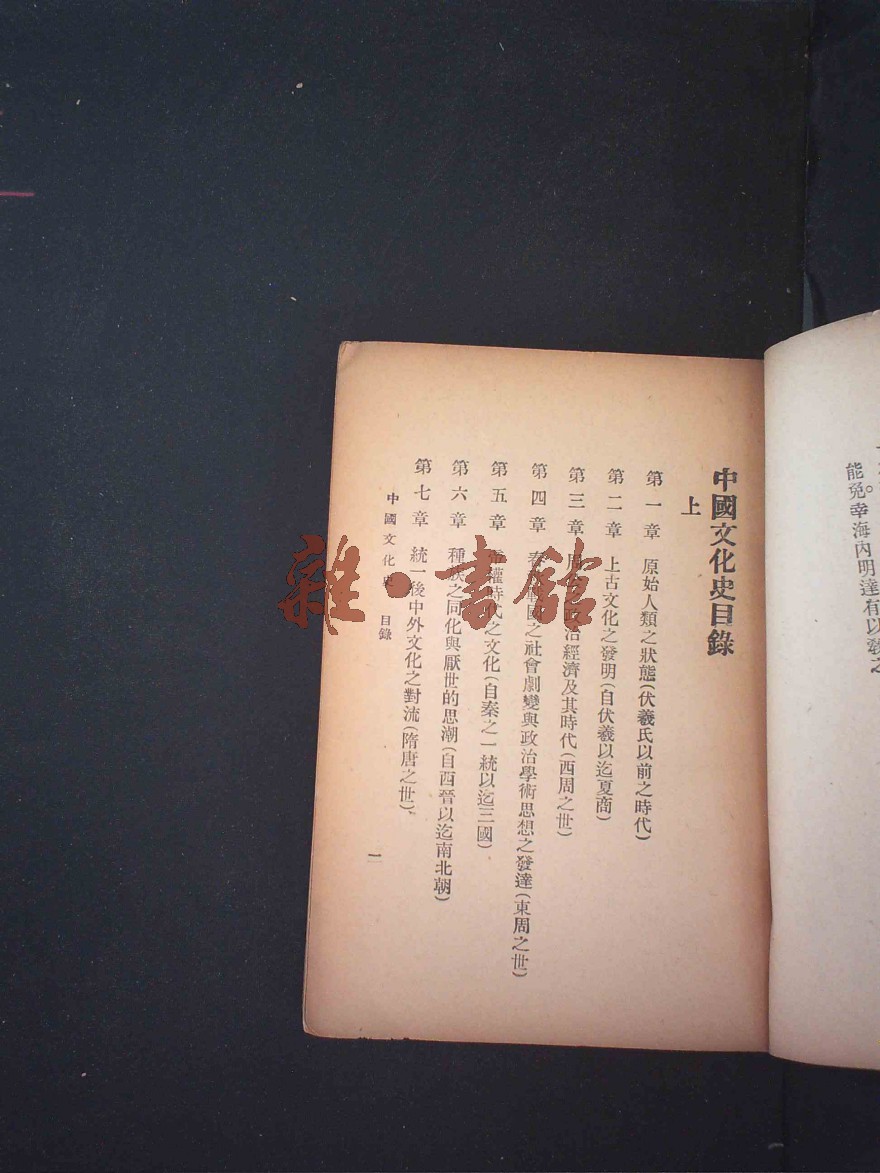 能免。幸海內明達有以教之
中國文化史目錄
上
第一章 原始人類之狀態(伏羲氏以前之時代)
第二章 上古文化之發明(自伏羲以迄夏商)
第三章 治經濟及其時代(西周之世)
第四章 春 國之社會劇變與政治學術思想之發達(東周之世)
第五章 權時代之文化(自秦之一統以迄三國)
第六章 種族之同化與厭世的思潮(自西晉以迄南北朝)
第七章 統一後中外文化之對流(隋唐之世)
中國文化史 目錄
一
雜·書館